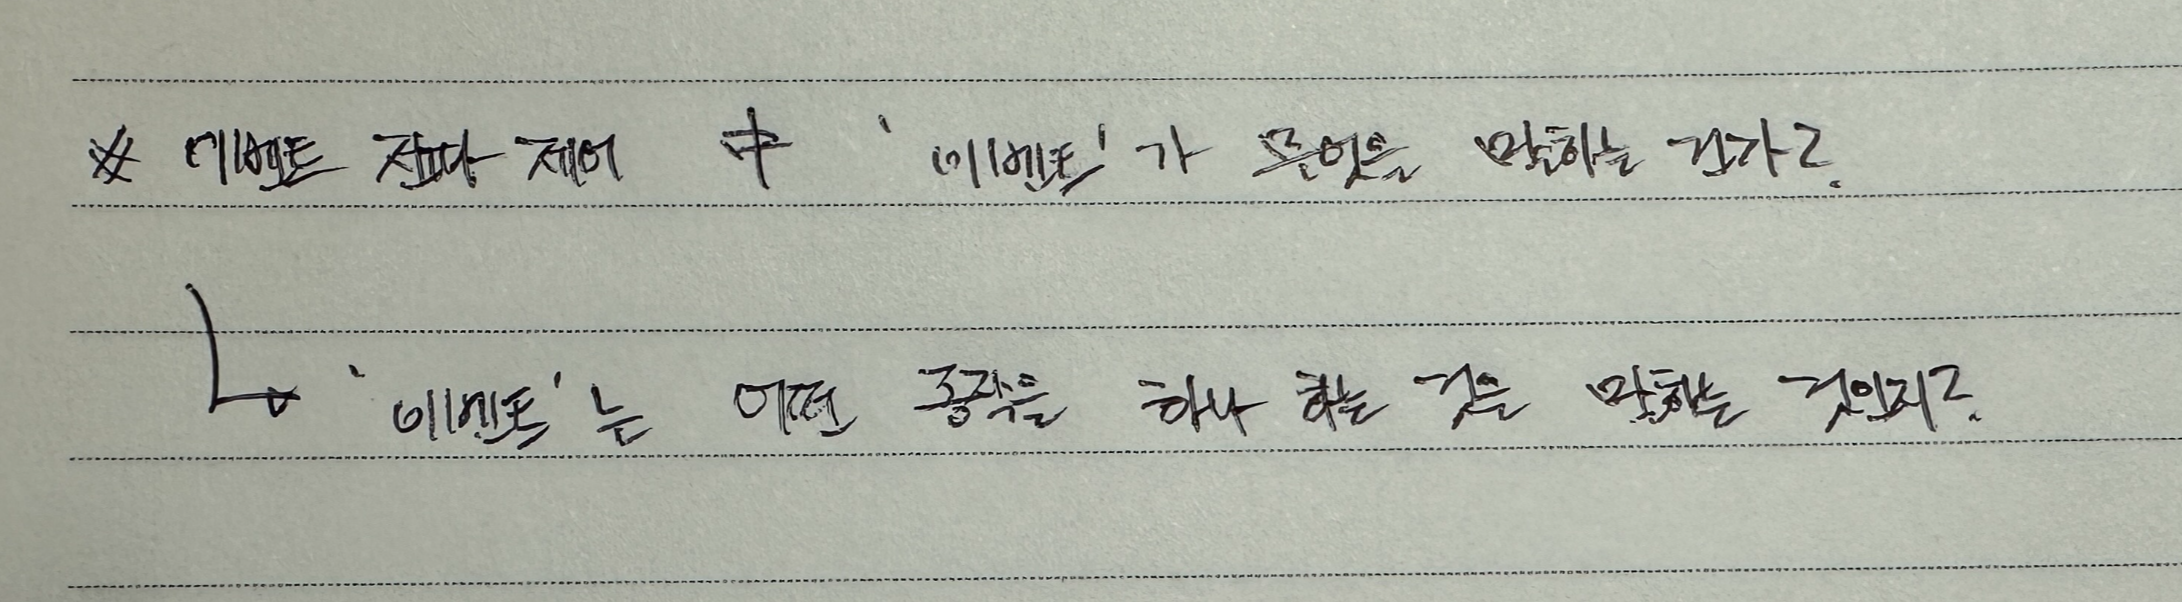 ※ 이벤트 전파 제어 中 '이벤트'가 무엇을 말하는 건가?
↳ '이벤트'는 어떤 동작을 하나 하는 것을 말하는 것인지?